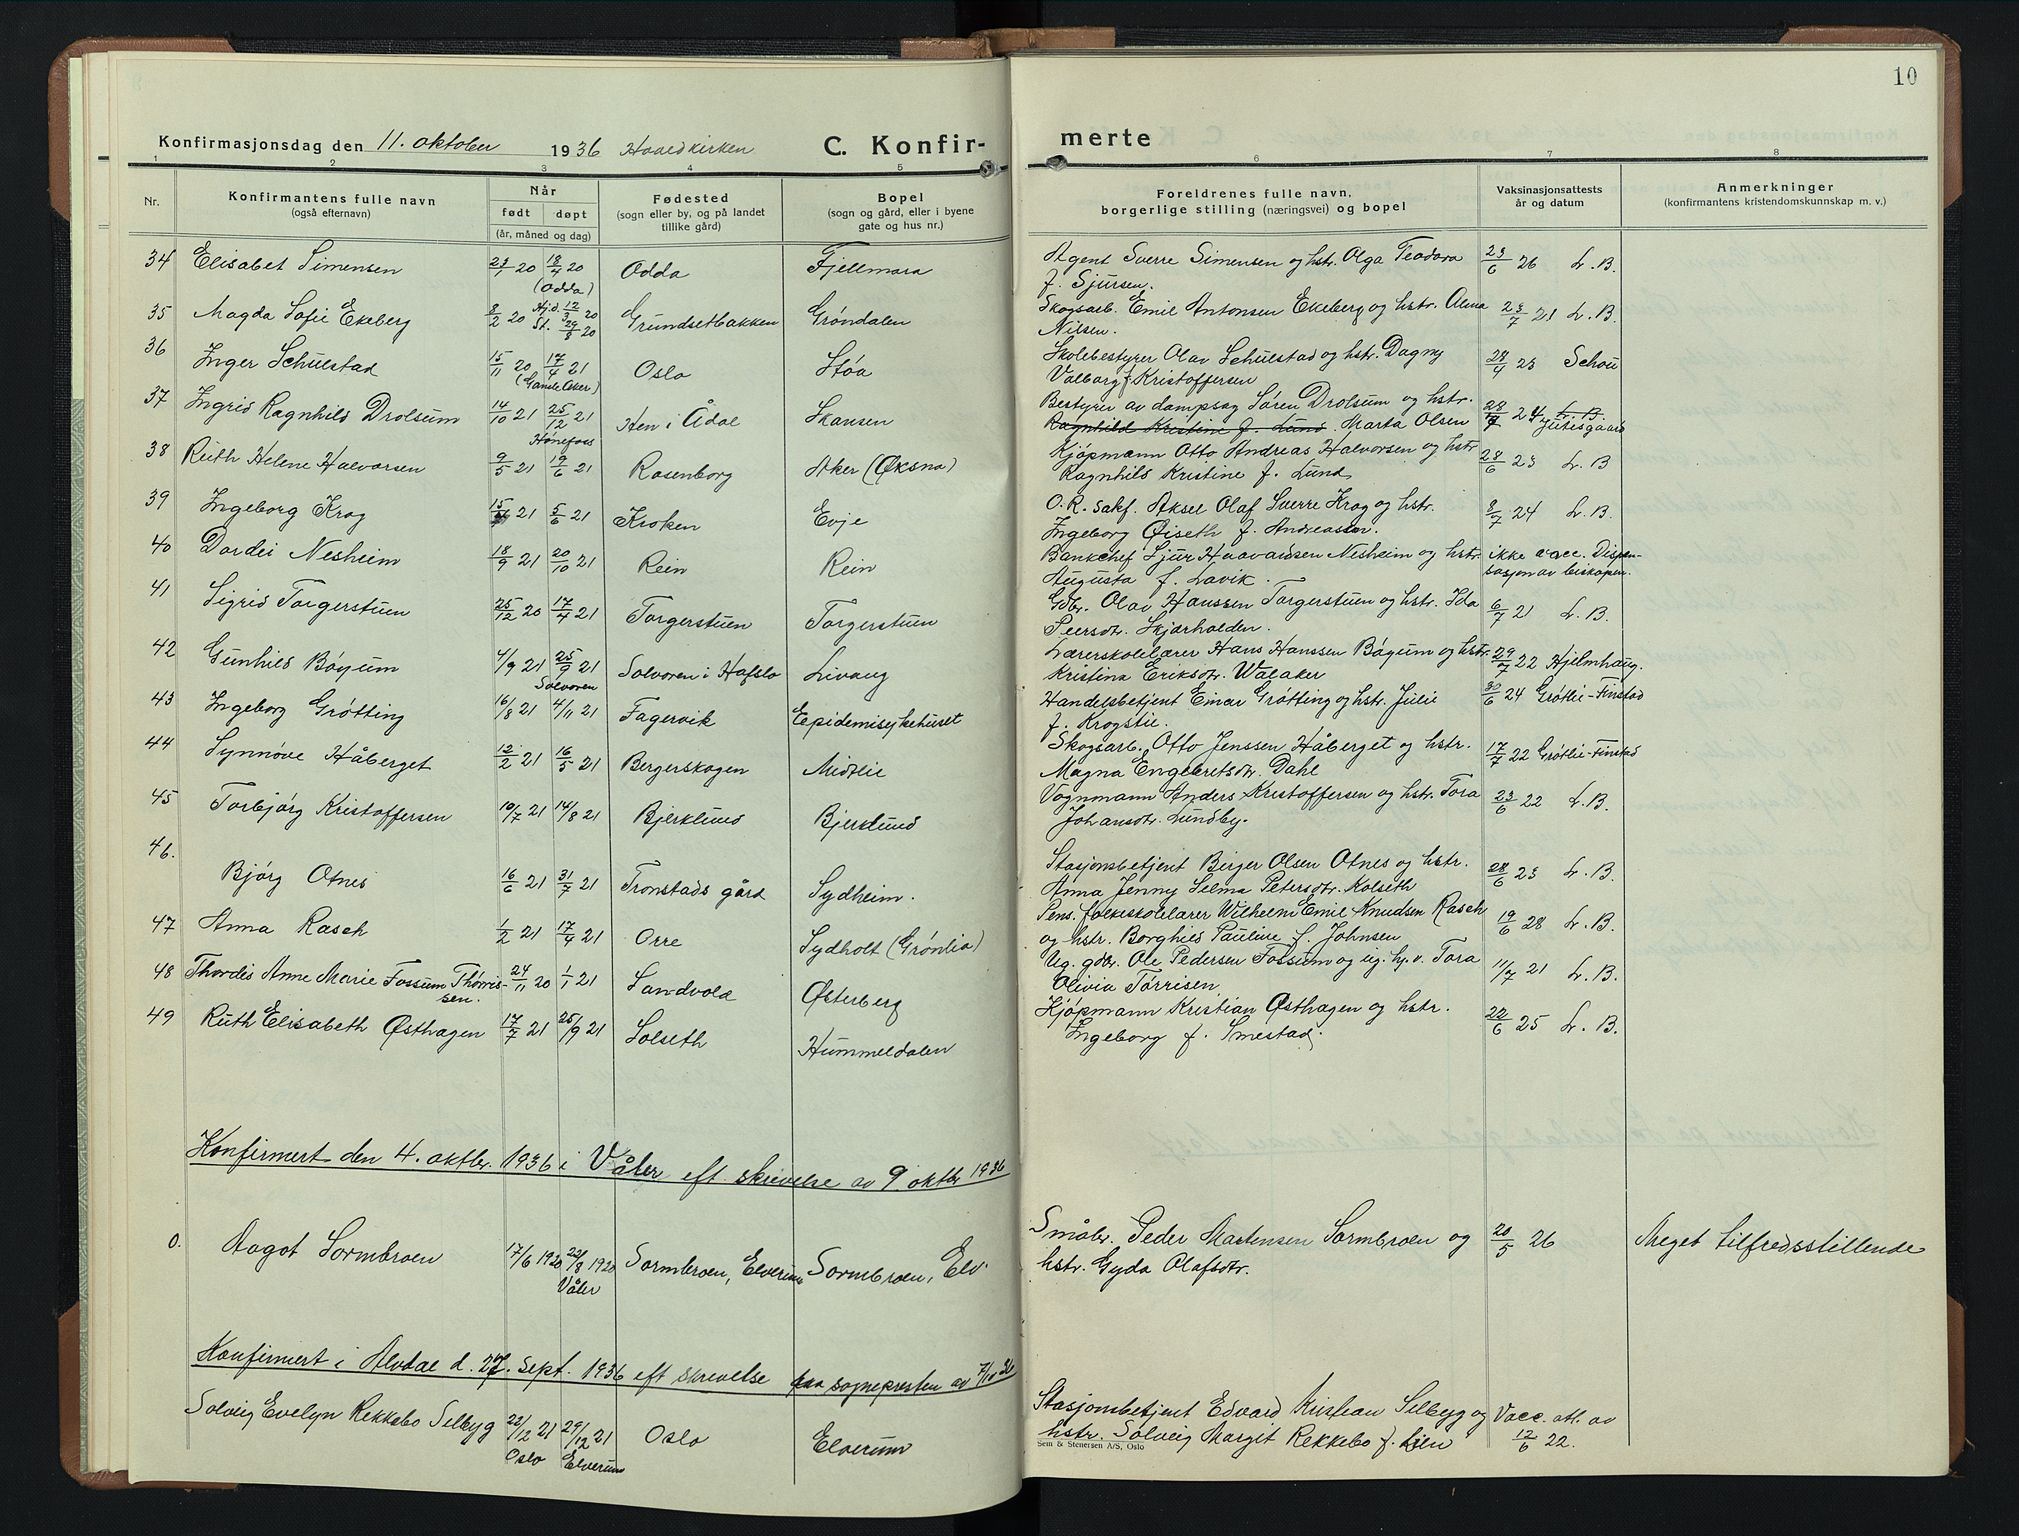 10
Konfirmasjonsdag den 11. oktober 1936 Hovedkirken C. Konfir-
merte
1 2 3 4 5
6 7 8
Nr.
Konfirmantens fulle navn
(også efternavn)
Når
født døpt
(år, måned og dag)
Fødested
(sogn eller by, og på landet
tillike gård)
Bopel
(sogn og gård, eller i byene
gate og hus nr.)
Foreldrenes fulle navn,
borgerlige stilling (næringsvei) og bopel
Vaksinasjonsattests
år og datum
Anmerkninger
(konfirmantens kristendomskunnskap m. v.)
34 Elisabet Simensen 20 18/4 20 (Odda) Odda Fjellmora
Agent Sverre Simensen og hstr. Olga Teodora
f. Sjursen. 23/6 26 L. B.
35 Magda Sofie Ekeberg 8/2 20 Hjd. 12/3 20 St. 29/8 20 Grundsetbakken Grøndalen
Skogsarb. Emil Antonsen Ekeberg og hstr. Alma
Nilsen. 23/7 21 L. B.
36 Inger Schulstad 15/11 20 17/4 21 (Gamle Aker) Oslo Støa
Skolebestyrer Olav Schulstad og hstr. Dagny
Valborg f. Kristoffersen 28/4 23 Schou
37 Ingrid Ragnhild Drolsum 14/10 21 25/12 21 Hønefoss Hen i Ådal Skansen
Bestyrer av dampsag Søren Drolsum og hstr.
Ragnhild Kristine f. Lund. Marta Olsen 24 L. B.
38 Ruth Helene Halvorsen 9/5 21 19/6 21 Rosenborg Aker (Øksna)
Kjøpmann Otto Andreas Halvorsen og hstr
Ragnhild Kristine f. Lund 28/6 23 L. B
39 Ingeborg Krog 21 5/6 21 Kroken Evje
O.R. sakf. Aksel Olaf Sverre Krog og hstr.
Ingeborg Øiseth f. Andreassen. 8/7 24 L. B.
40 Dordei Nesheim 18/9 21 20/10 21 Rein Rein
Bankchef Sjur Haavardsen Nesheim og hstr. ikke vacc. Dispen-
Augusta f. Lavik. sasjon av biskopen.
41 Sigrid Torgerstuen 25/12 20 17/4 21 Torgerstuen Torgerstuen
Gdbr. Olav Hanssen Torgerstuen og hstr. Ida
Peersdtr. Skjærholden. 6/7 21 L. B.
42 Gunhild Bøyum 4/9 21 25/9 21 Solvoren Solvoren i Hafslo Livang
Lærerskolelærer Hans Hanssen Bøyum og hstr
Kristina Eriksdtr. Walaker 29/7 22 Hjelmhaug.
43 Ingeborg Grøtting 16/8 21 4/11 21 Fagervik Eepidemisykehuset
Handelsbetjent Einar Grøtting og hstr. Julie
f. Krogstie. 30/6 24 Grøtlie-Finstad
44 Synnøve Håberget 12/2 21 16/5 21 Bergerskogen Midtlie
Skogsarb. Otto Jenssen Håberget og hstr.
Magna Engebretsdtr. Dahl 17/7 22 Grøtlie-Finstad
45 Torbjørg Kristoffersen 10/7 21 14/8 21 Bjerklund Bjerklund
Vognmann Anders Kristoffersen og hstr. Tora
Johansdtr. Lundby. 23/6 22 L. B.
46. Bjørg Otnes 16/6 21 31/7 21 Tronstads gård Sydheim.
Stasjonsbetjent Birger Olsen Otnes og hstr.
Anna Jenny Selma Petersdtr. Kolseth 28/6 23 L. B.
47 Anna Rasch 1/2 21 17/4 21 Orre Sydholt (Grønlia)
Pens. folkeskolelærer Wilhelm Emil Knudsen Rasch
og hstr. Borghild Pauline f. Johnsen 19/6 28 L. B.
48 Thordis Anne Marie Fossum Thørris-
sen. 24/11 20 1/1 21 Sandvold Østerberg
Ug. gdbr. Ole Pedersen Fossum og ug. hj. v. Tora
Olivia Tørrisen 11/7 21 L. B.
49 Ruth Elisabeth Østhagen 17/7 21 25/9 21 Solseth Hummeldalen
Kjøpmann Kristian Østhagen og hstr.
Ingeborg f. Smestad. 22/6 25 L. B.
Konfirmert den 4. oktbr. 1936 i Våler eft skrivelse av 9. oktbr 1936
0. Aagot Sormbroen 17/6 1920 22/8 1920 Våler Sormbroen, Elverum Sormbroen, Elv.
Småbr. Peder Martensen Sormbroen og
hstr. Gyda Olafsdtr. 20/5 26 Meget tilfredsstillende
Konfirmert i Alvdal d. 27. sept. 1936 eft skrivelse fra sognepresten av 7/10 36
Solveig Evelyn Rekkebo Selbyg 22/12 21 Oslo 29/12 21 Elverum Oslo Elverum
Stasjonsbetjent Edvard Kristian Selbyg og Vacc. att. av
hstr. Solveig Margit Rekkebo f. Lien 12/6 22.
Sem & Stenersen A/S, Oslo